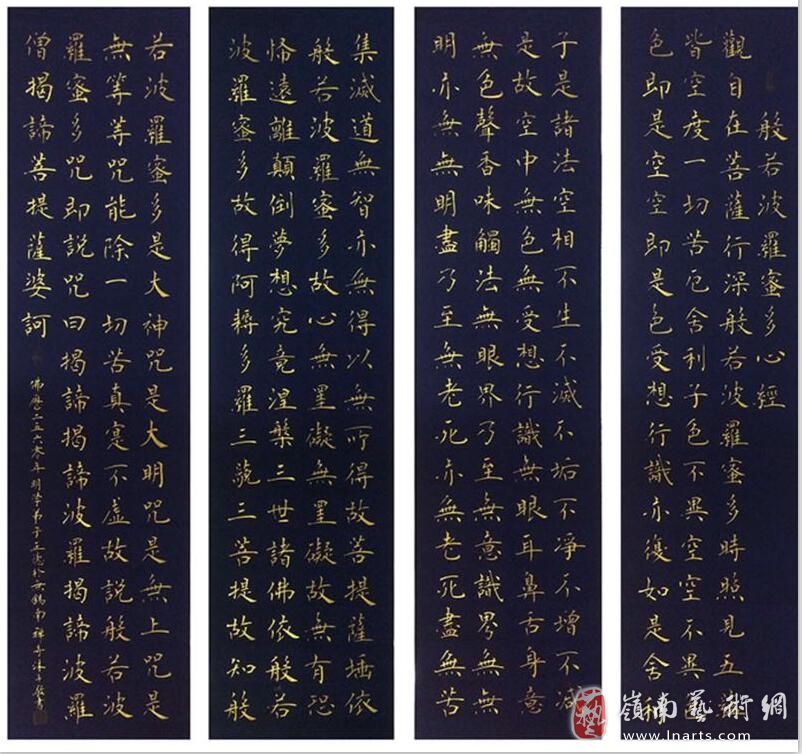 般若波羅蜜多心經
觀自在菩薩行深般若波羅蜜多時照見五
皆空度一切苦厄舍利子色不異空空不異
色即是空空即是色受想行識亦復如是舍利
子是諸法空相不生不滅不垢不淨不增不減
是故空中無色無受想行識無眼耳鼻舌身意
無色聲香味觸法無眼界乃至無意識界無無
明亦無無明盡乃至無老死亦無老死盡無苦
集滅道無智亦無得以無所得故菩提薩埵依
般若波羅蜜多故心無罣礙無罣礙故無有恐
怖遠離顛倒夢想究竟涅槃三世諸佛依般若
波羅蜜多故得阿耨多羅三藐三菩提故知般
若波羅蜜多是大神咒是大明咒是無上咒是
無等等咒能除一切苦真寔不虛故說般若波
羅蜜多咒即說咒曰揭諦揭諦波羅揭諦波羅
僧揭諦菩提薩婆訶
佛曆二五六零年弟子於無錫南禪寺書
嶺南藝術網
www.lnarts.com